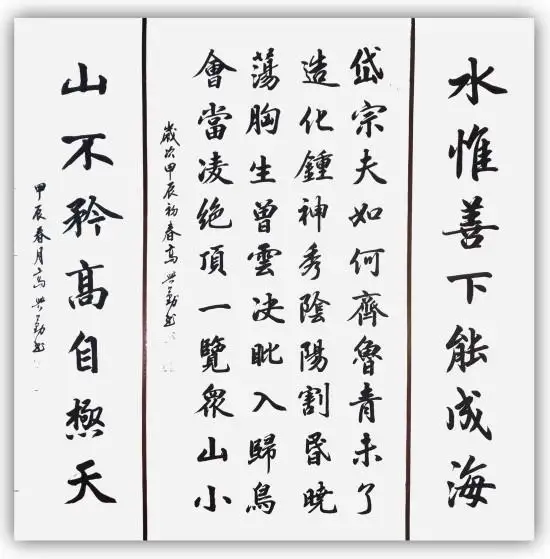 水惟善下能成海
岱宗夫如何齊魯青未了
造化鍾神秀陰陽割昏曉
蕩胸生曾雲決眦入歸鳥
會當凌絶頂一覽衆山小
歲次甲辰初春高興勤書
山不矜高自極天
甲辰春月高興勤書